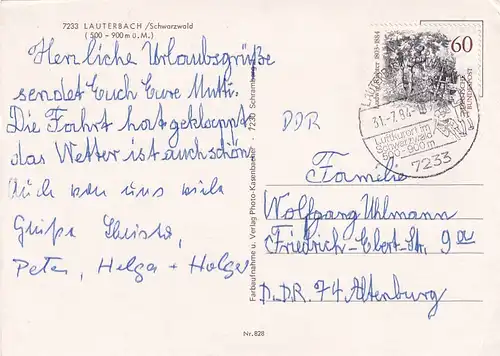 7233 LAUTERBACH /Schwarzwald
(500 - 900 m ü. M.)
Herzliche Urlaubsgrüße
sendet Euch Eure Mutti.
Die Fahrt hat geklappt
das Wetter ist auch schön.
Auch von uns viele
Grüße
Peter, Helga + Holger
Farbaufnahme u. Verlag Photo-Kasenbacher · 7230 Schramberg
Nr. 828
1803-1884
60
DEUTSCHE
BUNDESPOST
31.-7.84
Luftkurort im
Schwarzwald
500-900m
7233
DDR
Familie
Wolfgang Uhlmann
Friedrich-Ebert-Str. 9a
D.D.R. 74 Altenburg